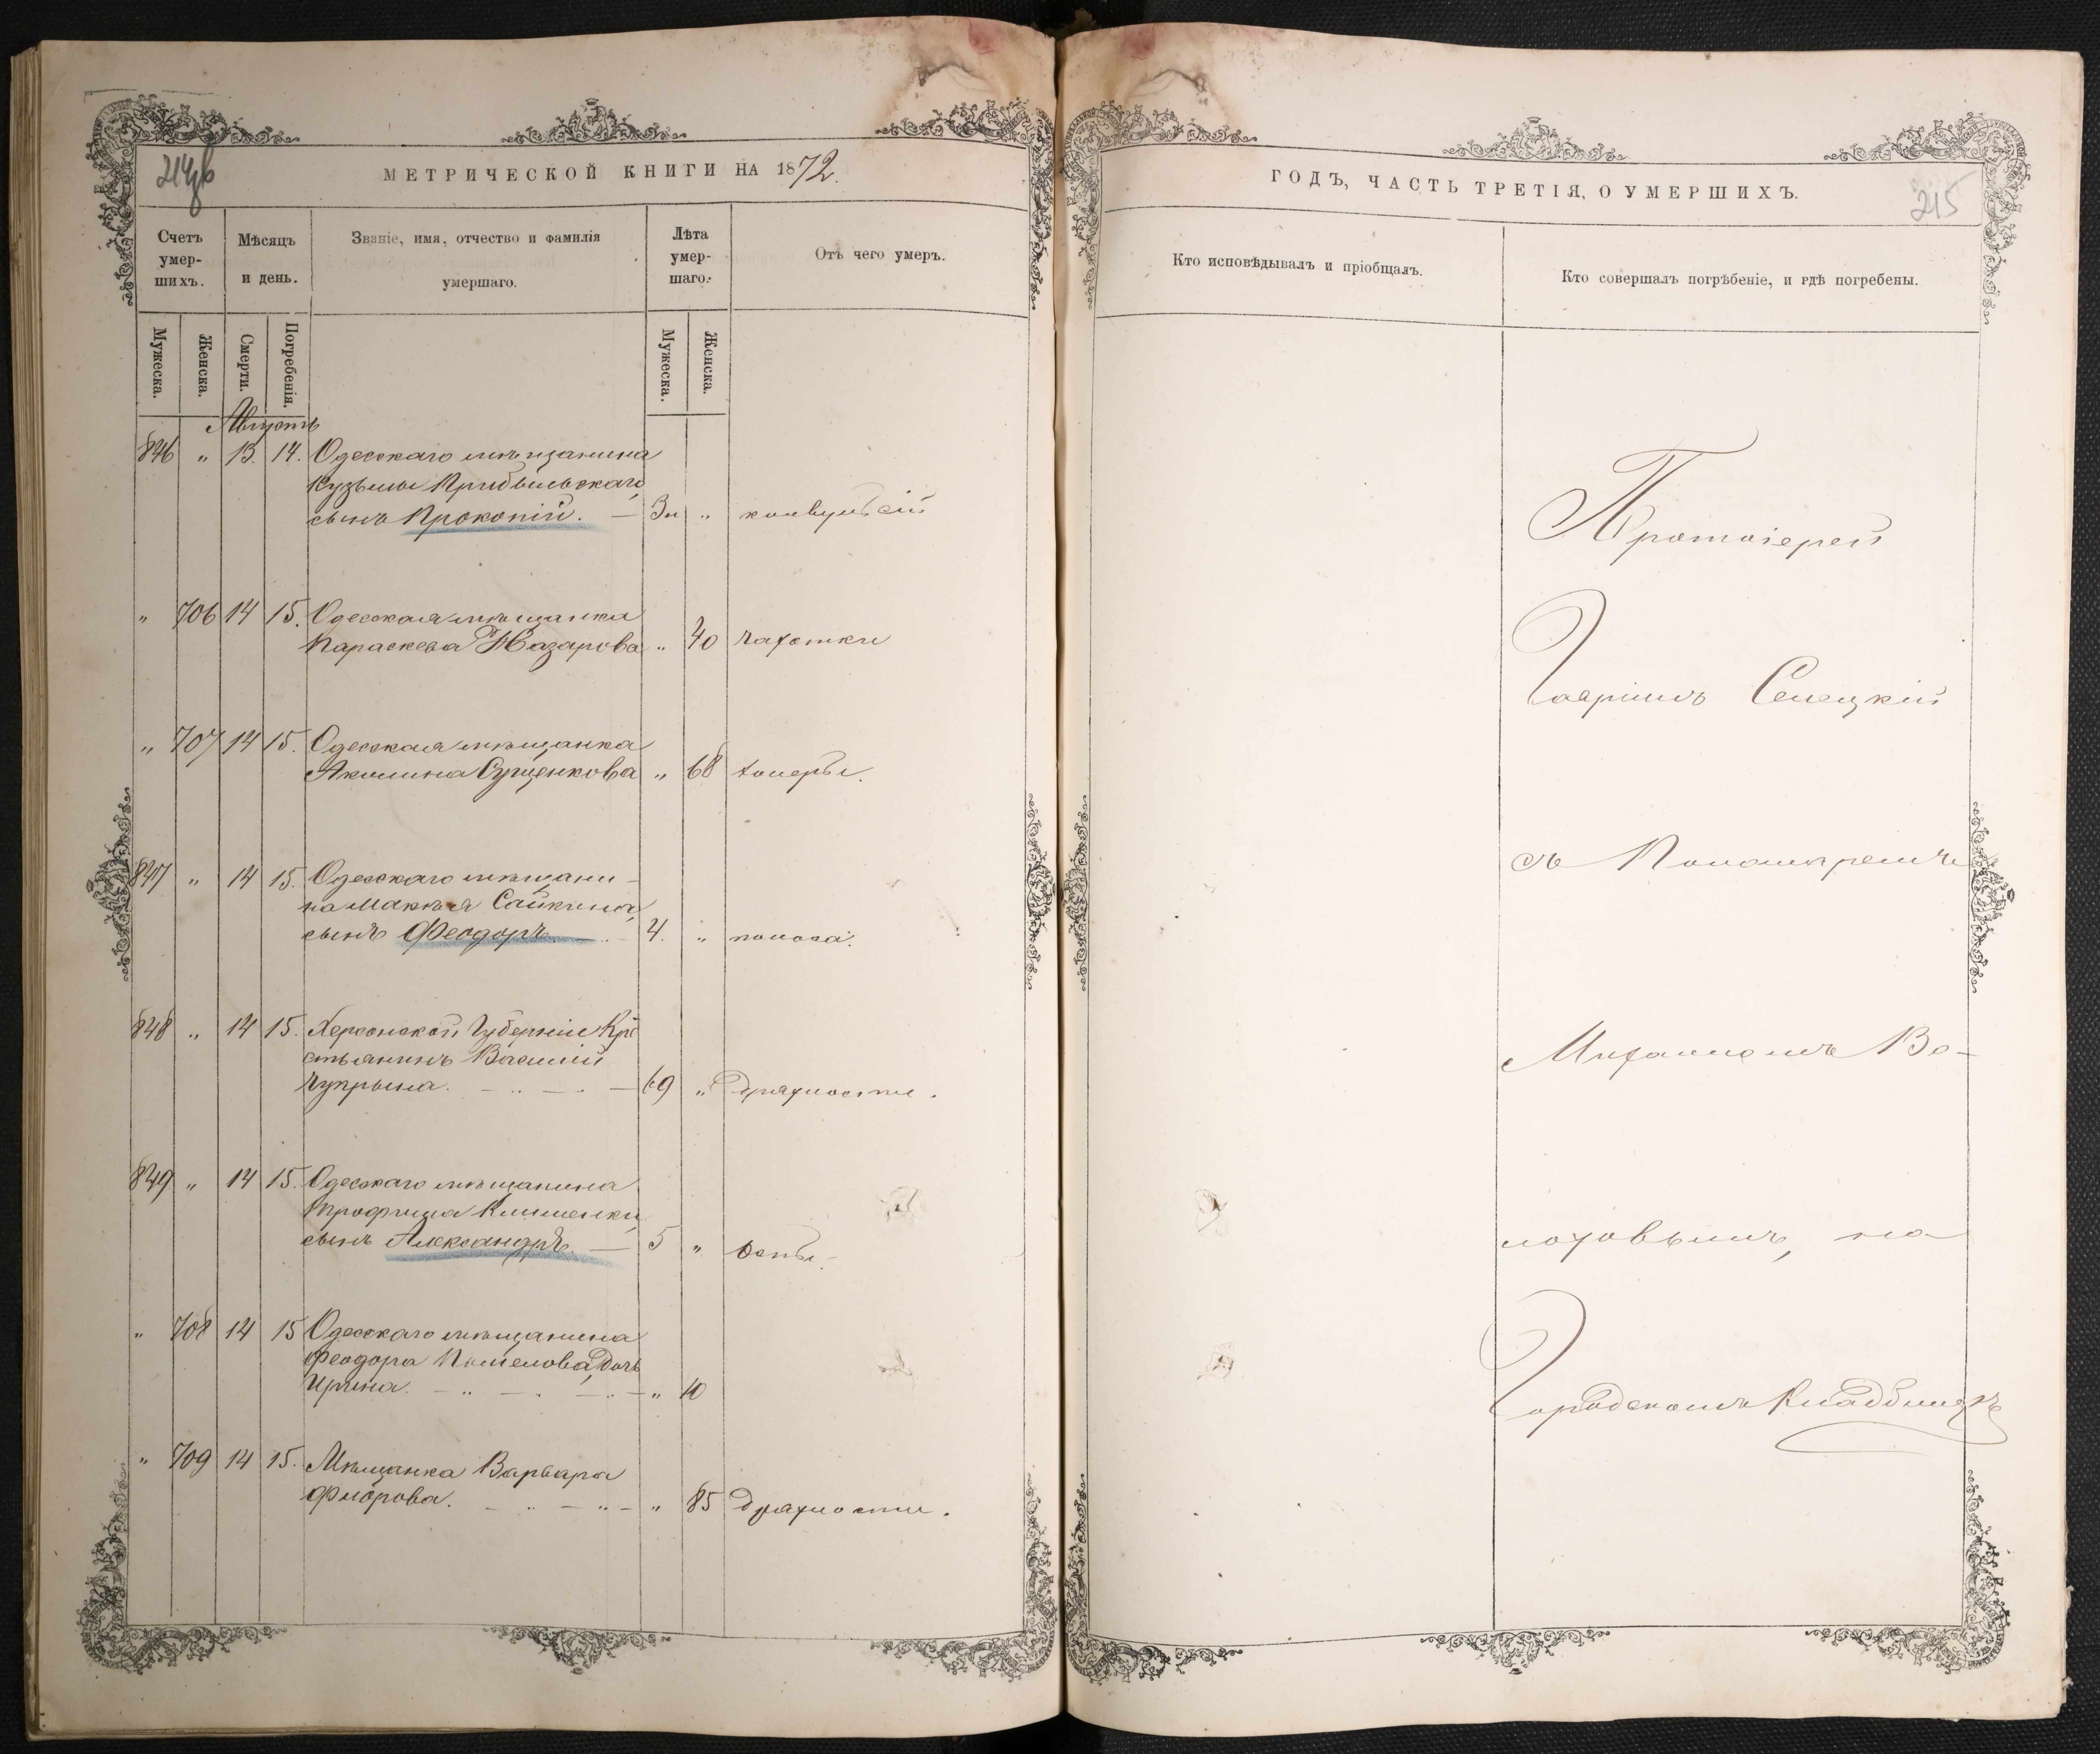 214об
МЕТРИЧЕСКОЙ КНИГИ НА 1872.
Счетъ умер-шихъ.
Мѣсяцъ и день.
Званіе, имя, отчество и фамилія умершаго.
Лѣта умер-шаго.
Отъ чего умеръ.
Мужеска.
Женска.
Смерти.
Погребенія.
Мужеска.
Женска.
Августъ
846 " 13. 14. Одесскаго мѣщанина
Кузьмы Прибыльскаго
сынъ Прокопій. — 3н " конвульсій
" 706 14 15. Одесская мѣщанка
Параскева Назарова " 40 чахотки
" 707 14 15. Одесская мѣщанка
Акилина Сущенкова " 68 холеры.
847 " 14 15. Одесскаго мѣщани-
на Сайкина
сынъ Феодоръ. — 4. " поноса.
848 " 14 15. Херсонской Губерніи Кре
стьянинъ Василій
Чупрына. — 69 " Дряхлости.
849 " 14 15. Одесскаго мѣщанина
Трофима Клименки
сынъ Александръ. — 5 " Оспы.
" 708 14 15 Одесскаго мѣщанина
Феодора Дочь
Ирина. — " 10
" 709 14 15. Мѣщанка Варвара
Флорова. — " 85 Дряхлости.
ГОДЪ, ЧАСТЬ ТРЕТІЯ, О УМЕРШИХЪ.
215
Кто исповѣдывалъ и пріобщалъ.
Кто совершалъ погрѣбеніе, и гдѣ погребены.
Протоіерей
Гавріилъ Селецкій
съ Пономаремъ
Михаиломъ Во-
лоховымъ, на
Городскомъ Кладбищѣ